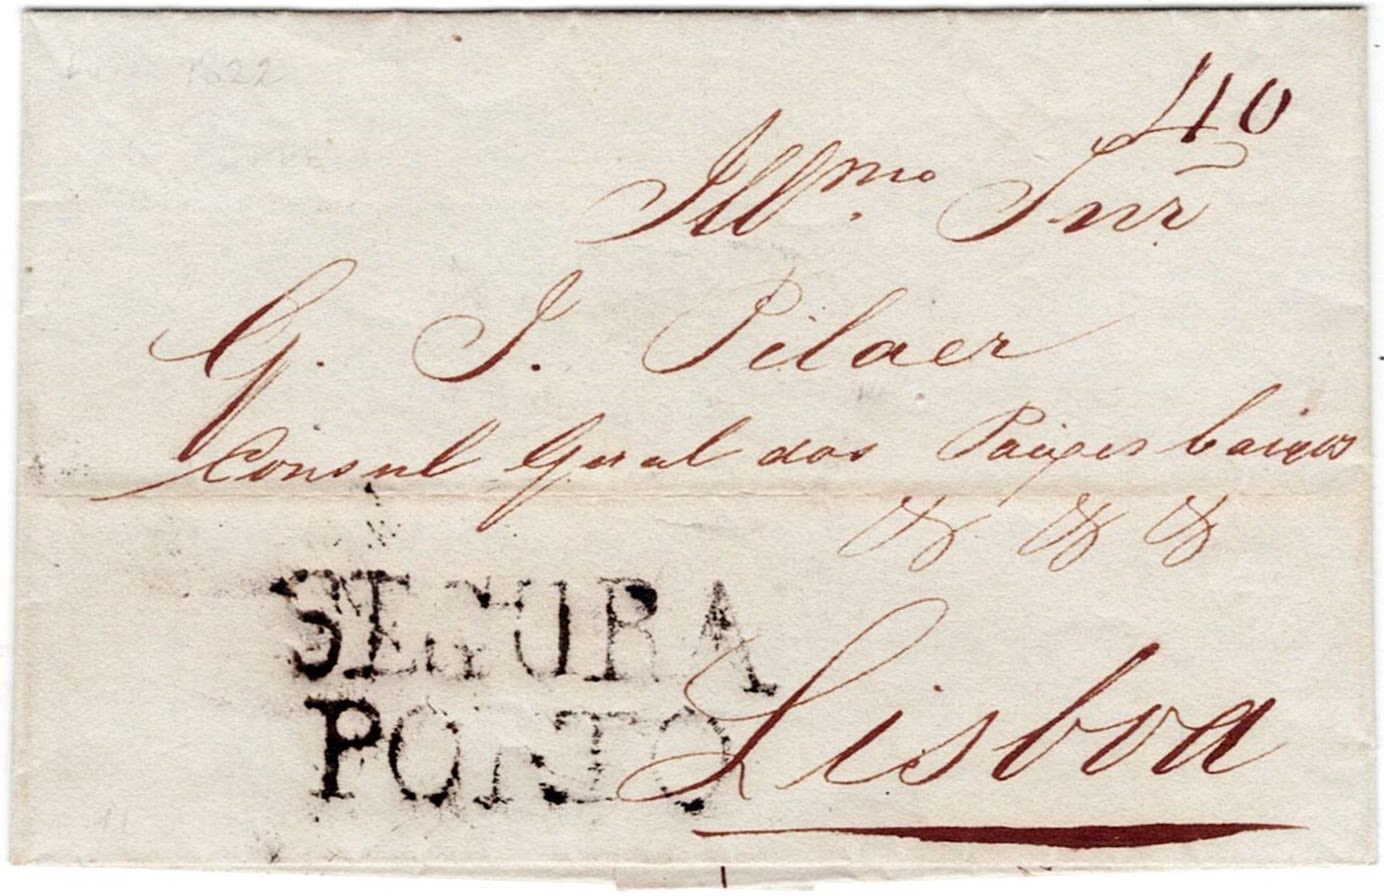 1822
40
Illmo. Snr
G. J. Pilaer
Consul Geral dos Paizes baixos
& & &
SEGURA
PORTO
Lisboa